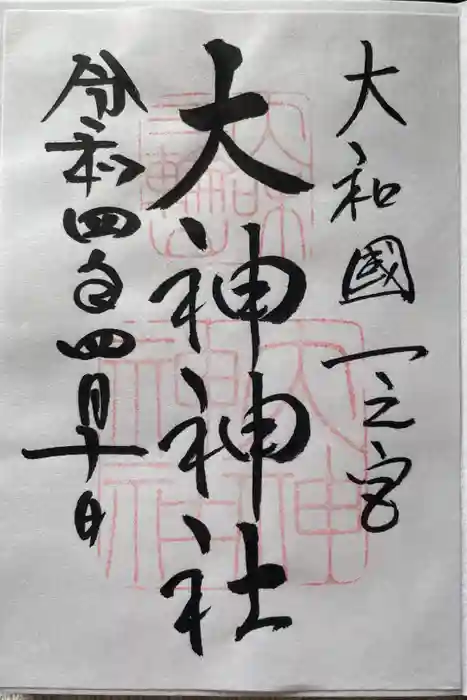 大和國一之宮
大神神社
令和四年四月十日